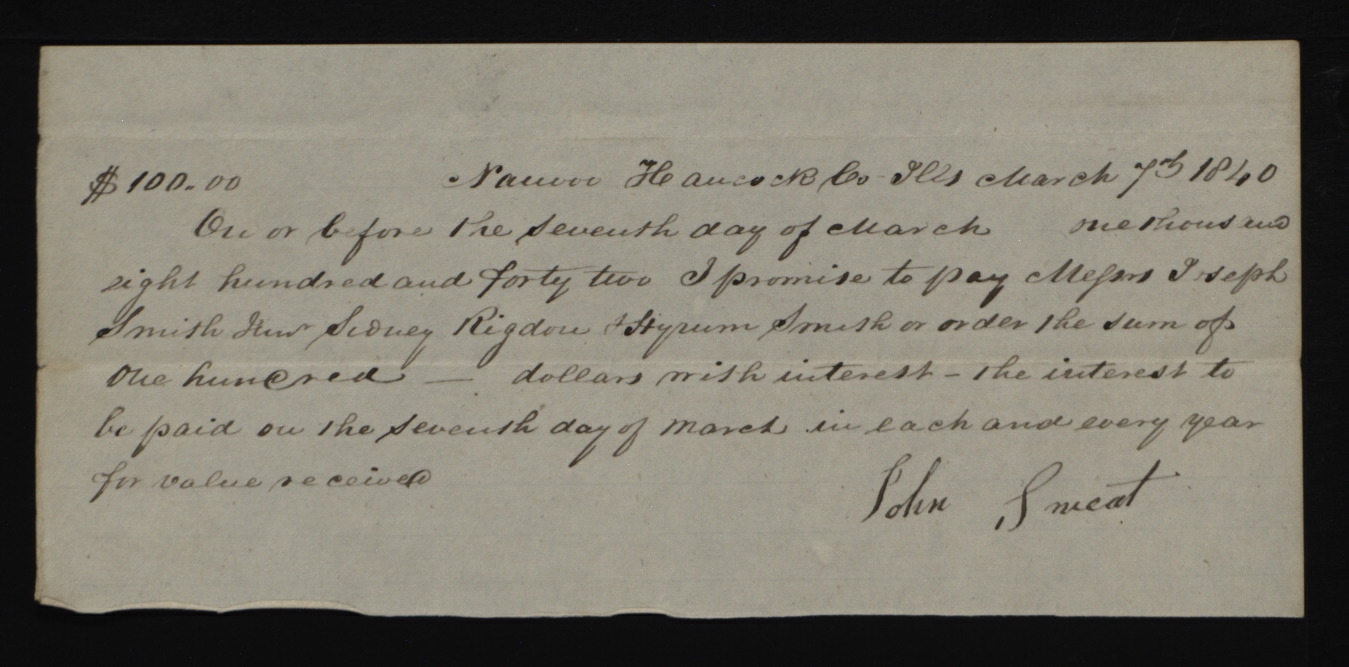 $100.00 Nauvoo Hancock Co Ills March 7th 1840
On or before the seventh day of March one thousand
eight hundred and forty two I promise to pay Messrs Joseph
Smith Junr Sidney Rigdon & Hyrum Smith or order the sum of
One hundred — dollars with interest - the interest to
be paid on the seventh day of March in each and every year
for value received
John Sweat